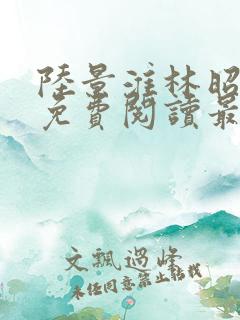 陸景淮林昭
免費閱讀最
文飄過峰
未任同意禁止轉載